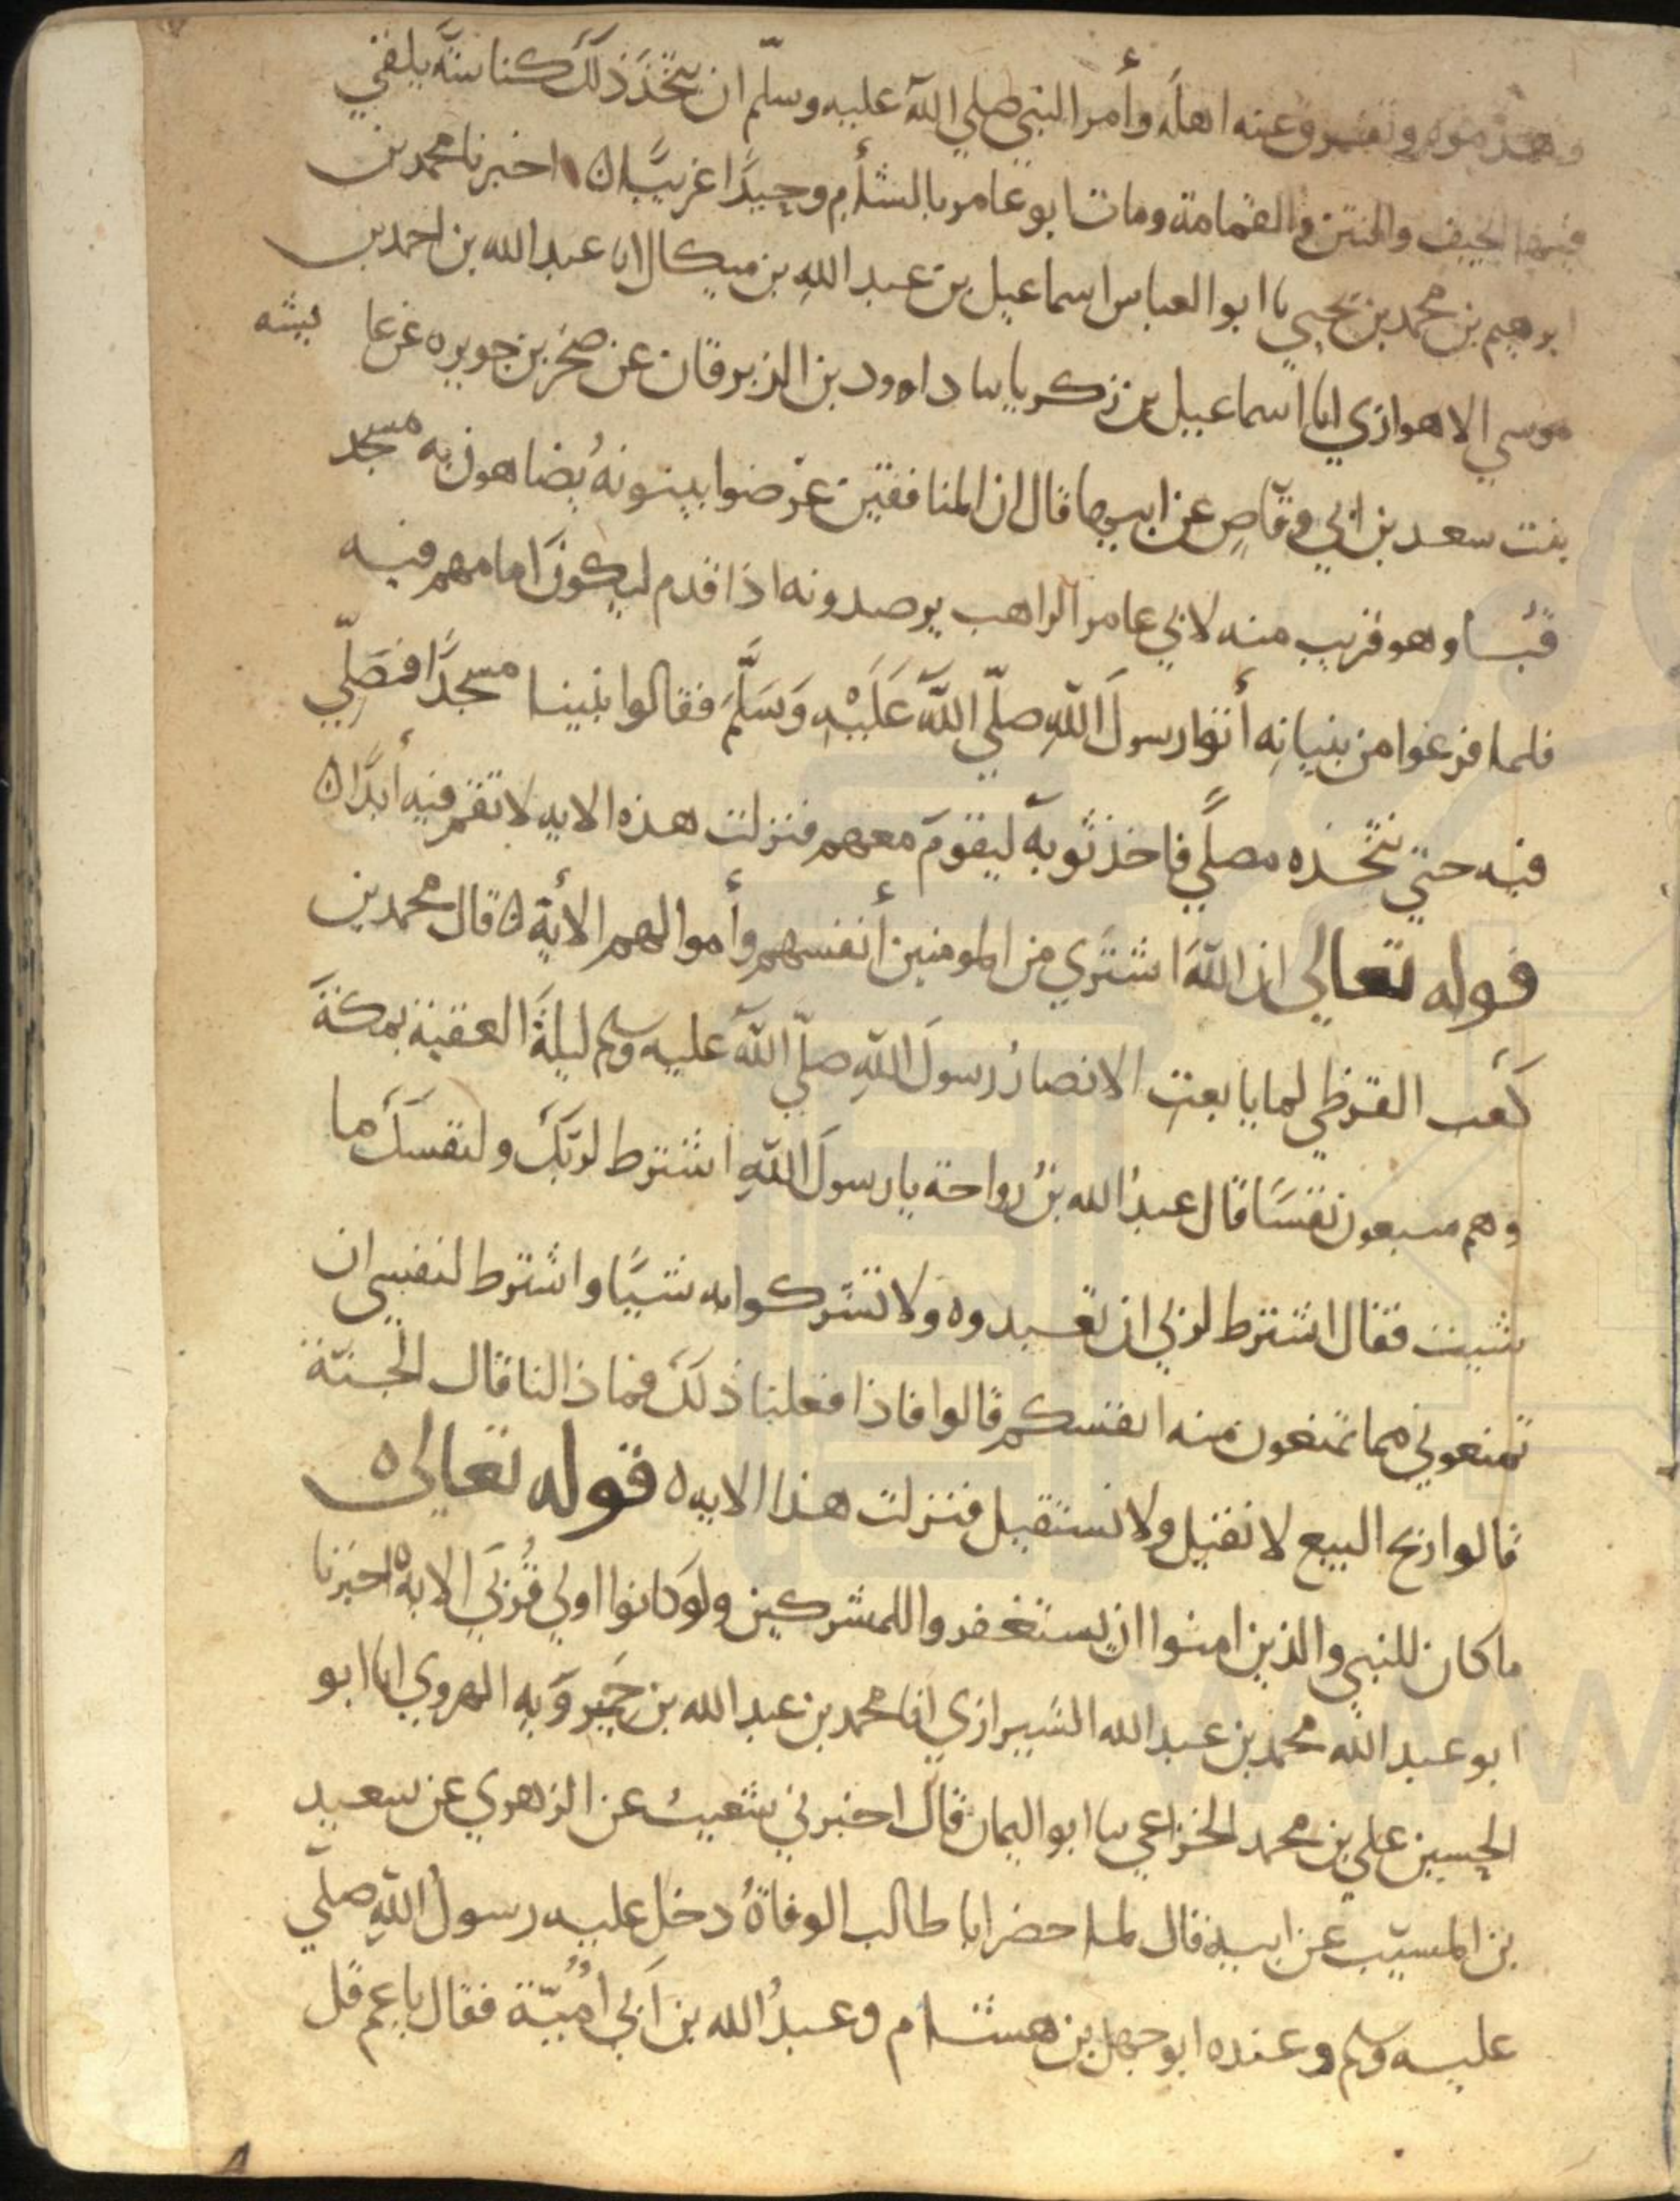 وهدموه وتفرق عنه اهله وأمر النبي صلي الله عليه وسلّم ان يتخذ ذلك كناسة يلقي
فيها الجيف والنتن والقمامة ومات ابو عامر بالشأم وحيدًا غريبًا ه اخبرنا محمد بن
ابرهيم بن محمد بن يحيي نا ابو العباس اسماعيل بن عبد الله بن ميكال انا عبد الله بن احمد بن
موسي الاهوازي انا اسماعيل بن زكريا نا داوود بن الزبرقان عن صخر بن جويره عن عا يشه
بنت سعد بن ابي وقّاصٍ عن ابيها قال ان المنافقين عرّضوا يبنونهُ يضاهون به مسجد
قُبا وهو قريب منه لابي عامر الراهب يرصدونه اذا قدم ليكونَ امامهم فيه
فلما فرغوا من بنيانِه أتوا رسولَ اللهِ صلّي اللهُ عَلَيْهِ وَسَلَّمَ فقالوا بنينا مسجدًا فصَلِّي
فيه حتي نتّخذه مصلًي فاخذ ثوبهَ ليقومَ معهم فنزلت هذه الايه لا تقم فيه أبدًا ه
قوله تعالي ان اللهَ اشتَري من المومنين أنفسهم وأموالهم الأية ه قال محمد بن
كَعب القرظي لما بايعت الانصارُ رسولَ اللهِ صلّي اللهُ عليه وسلم ليلةَ العقبة بمكةَ
وهم سبعون نفسًا قال عبدُ الله بنُ رواحة يا رسولَ اللهِ اشترط لربّكَ ولنفسكَ ما
شيت فقال اشترط لربي ان تعبدوه ولا تشركوا به شيًا واشترط لنفسي ان
تمنعوني مما تمنعون منه انفسكم قالوا فاذا فعلنا ذلكَ فماذا لنا قال الجنّة
قالوا ربح البيع لا نقيل ولا نستقيل فنزلت هذا الايه ه قوله تعالي ه
ما كان للنبي والذين امنوا ان يستغفروا للمشركين ولو كانوا اولي قُربَي الايه ه اخبرنا
ابو عبد الله محمد بن عبد الله الشيرازي انا محمد بن عبد الله بن خَميروَيه الهروي انا ابو
الحسين علي بن محمد الخزاعي نا ابو اليمان قال اخبرني شعيبُ عن الزهري عن سعيد
بن المسيّب عن ابيه قال لما حضر ابا طالب الوفاةُ دخل عليه رسولُ اللهِ صلّي
عليه وسلم وعنده ابو جهل بن هشام وعبدُ الله بن اَبي اُميّة فقال يا عم قل